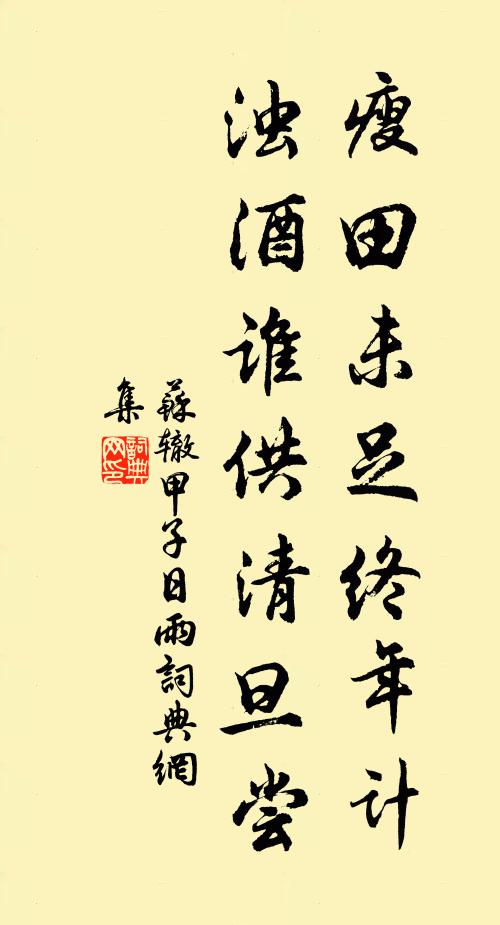 瘦田未足终年计
浊酒谁供清旦尝
蘇辙甲子日雨詞典網
集
詞典网印